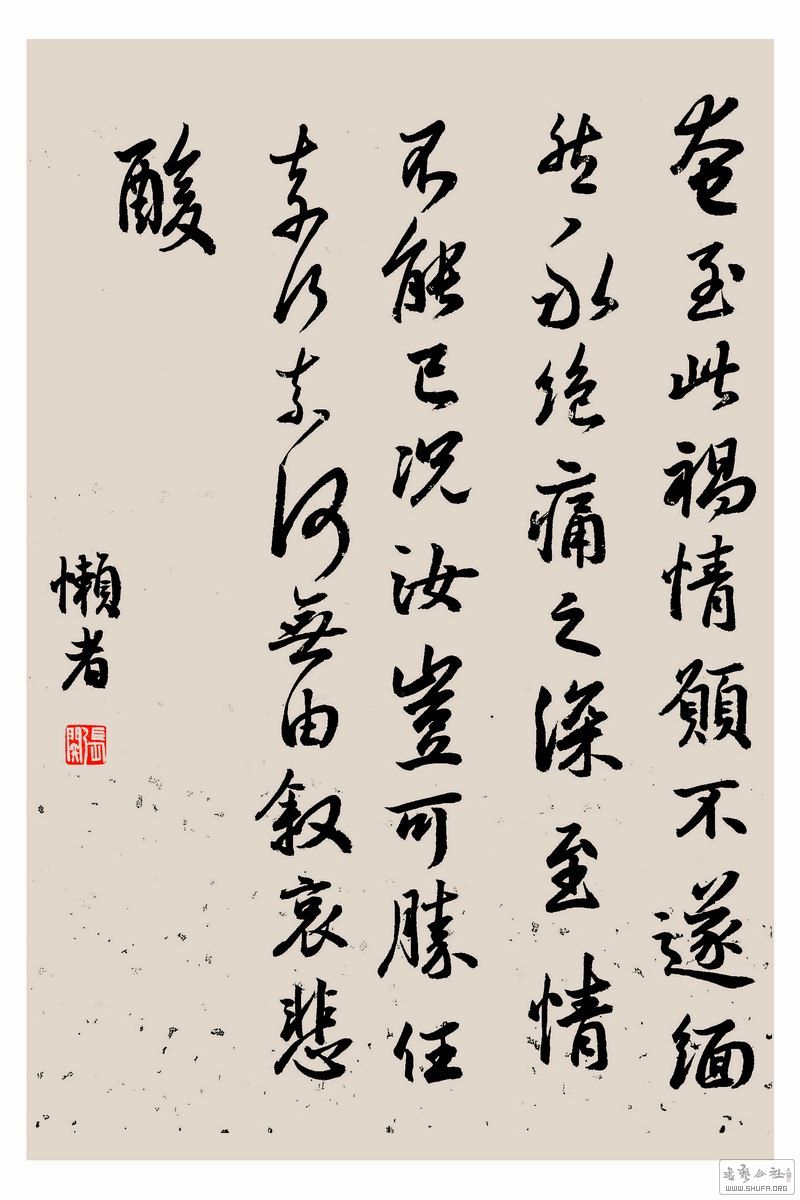 奄至此禍情願不遂緬
然永絕痛之深至情
不能已況汝豈可勝任
奈何奈何無由叙哀悲
酸
懶者
書藝公社
WWW.SHUFA.ORG